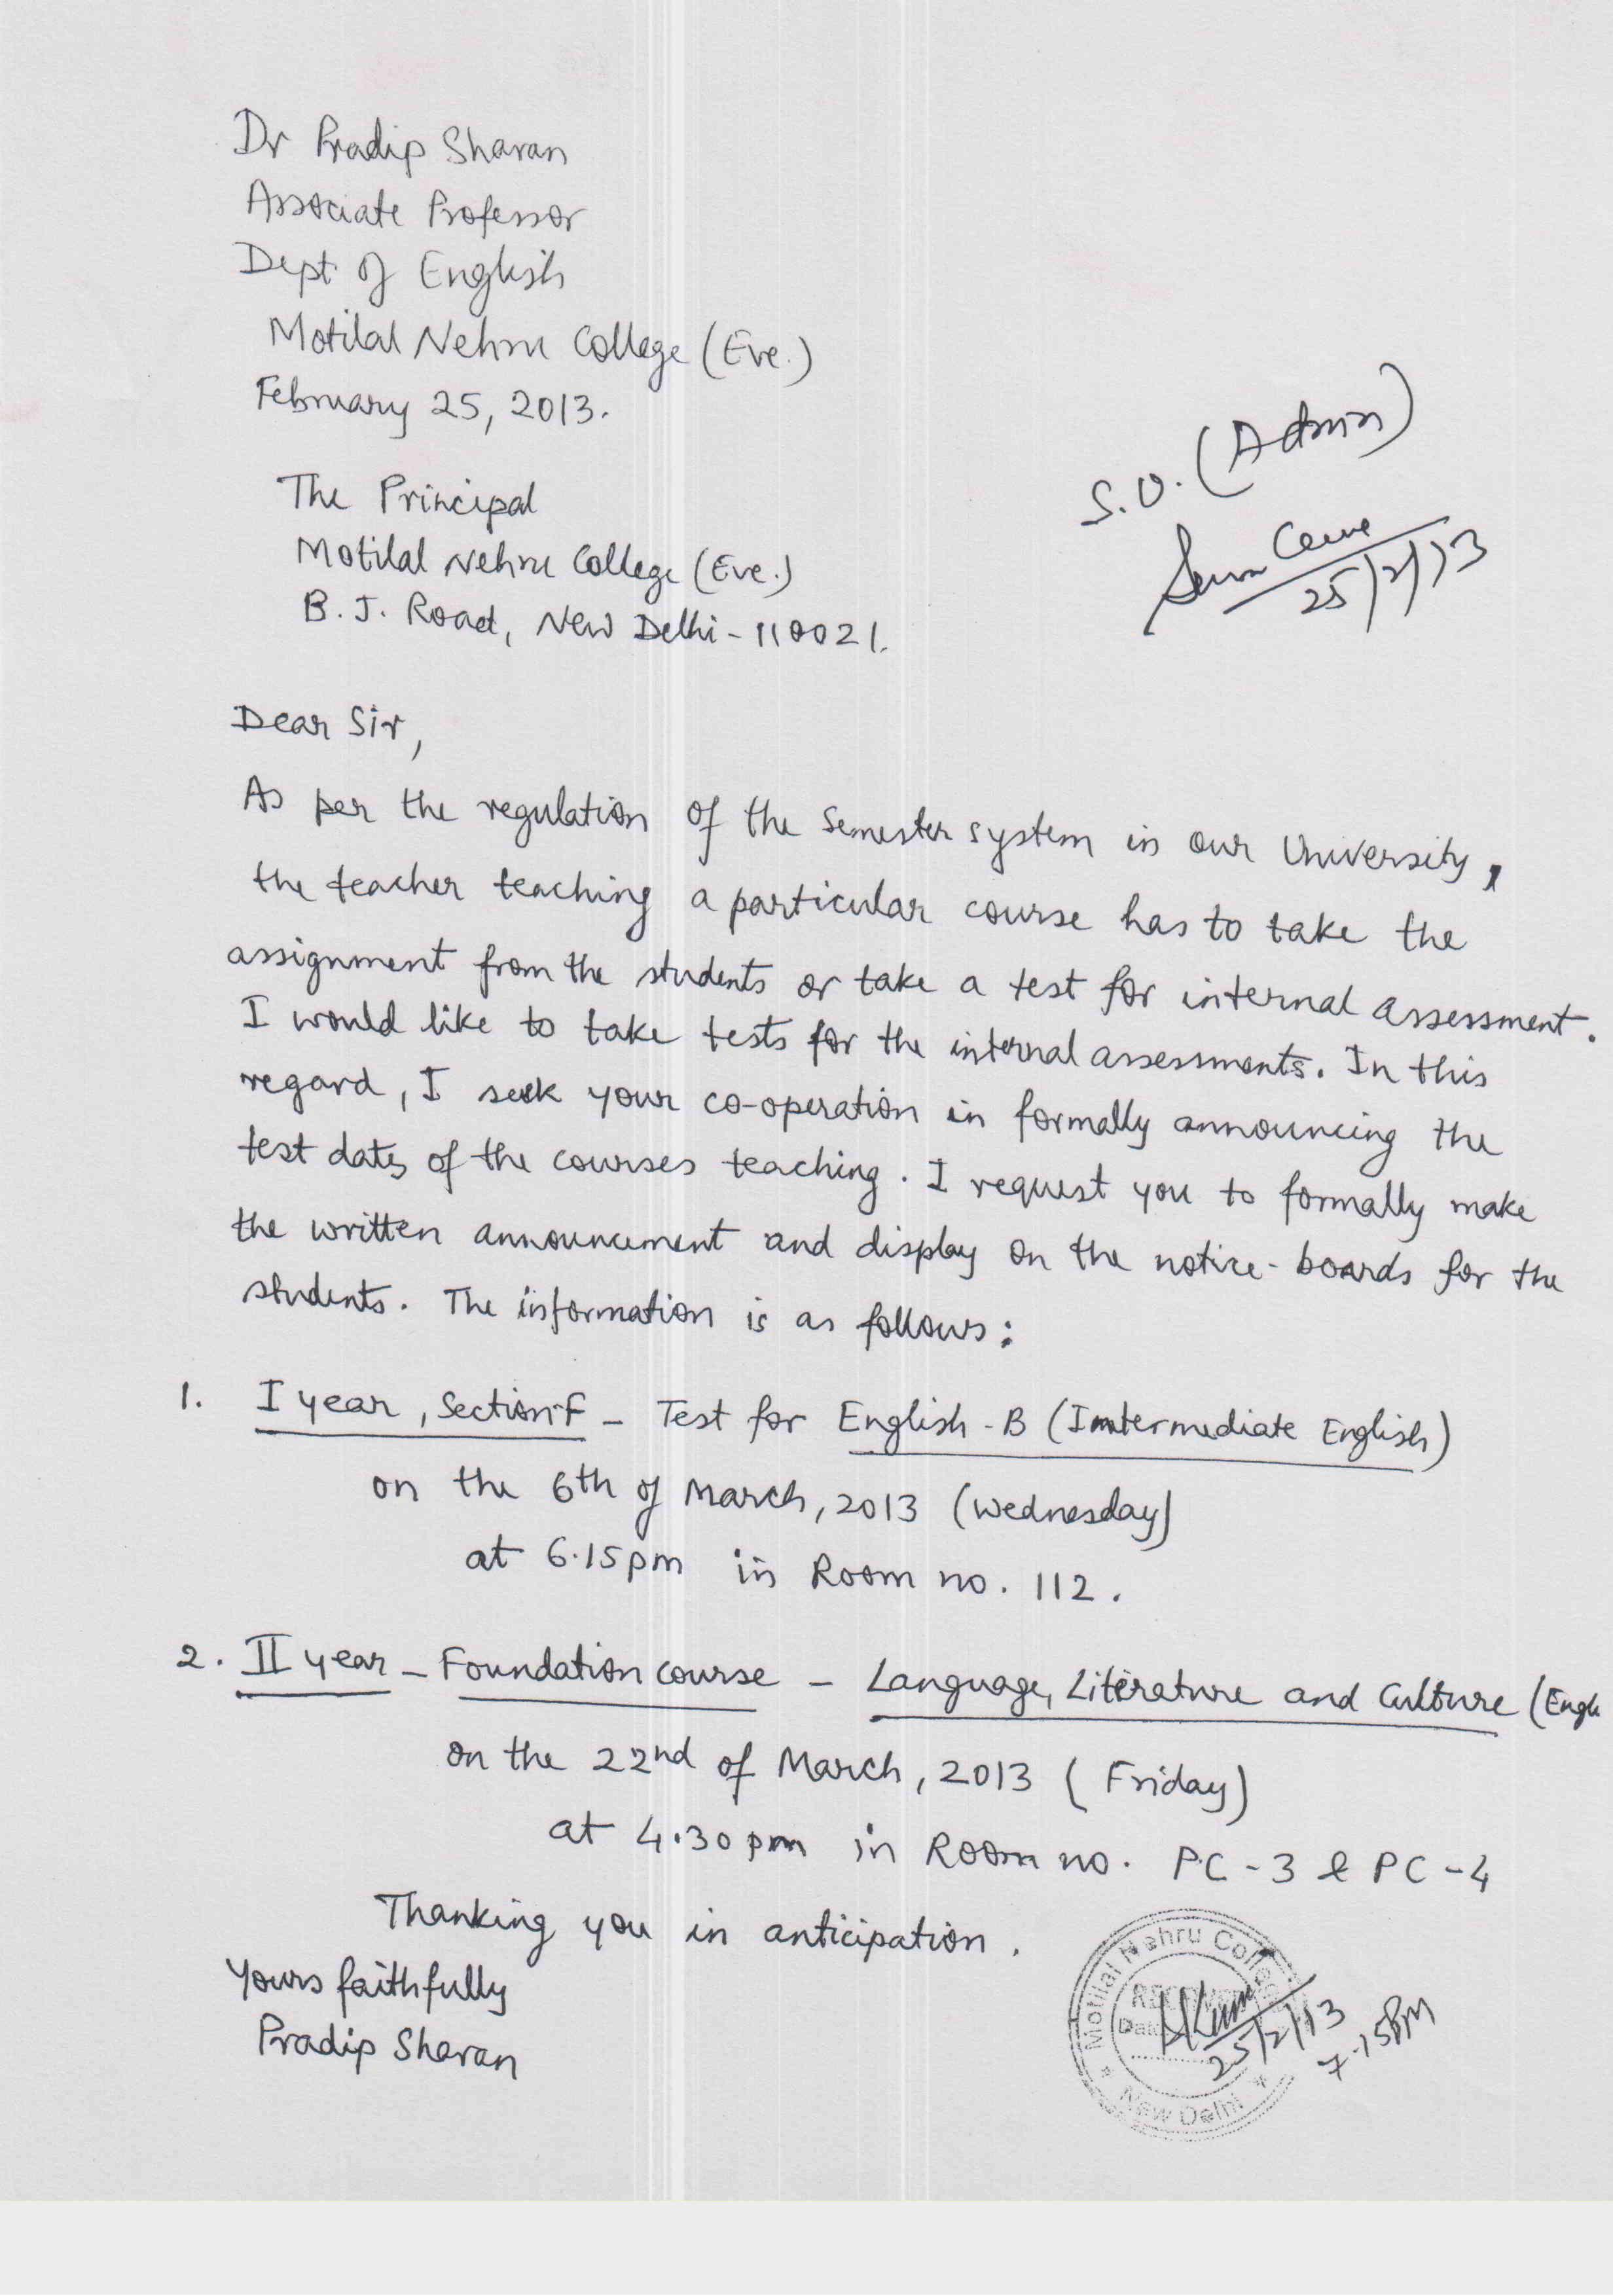 Dr Pradip Sharan
Associate Professor
Dept of English
Motilal Nehru College (Eve.)
February 25, 2013.
S.O. (Admin)
25/2/13
The Principal
Motilal Nehru College (Eve.)
B. J. Road, New Delhi - 110021.
Dear Sir,
As per the regulation of the Semester system in our University,
the teacher teaching a particular course has to take the
assignment from the students or take a test for internal assessment.
I would like to take tests for the internal assessments. In this
regard, I seek your co-operation in formally announcing the
test dates of the courses teaching. I request you to formally make
the written announcement and display on the notice-boards for the
students. The information is as follows:
1. I year, Section-F - Test for English - B (Intermediate English)
on the 6th of March, 2013 (Wednesday)
at 6.15pm in Room no. 112.
2. II year - Foundation course - Language, Literature and Culture (Engl
on the 22nd of March, 2013 (Friday)
at 4.30pm in Room no. PC-3 & PC-4
Thanking you in anticipation.
Yours faithfully
Pradip Sharan
Motilal Nehru College
25/2/13
7.15PM
New Delhi